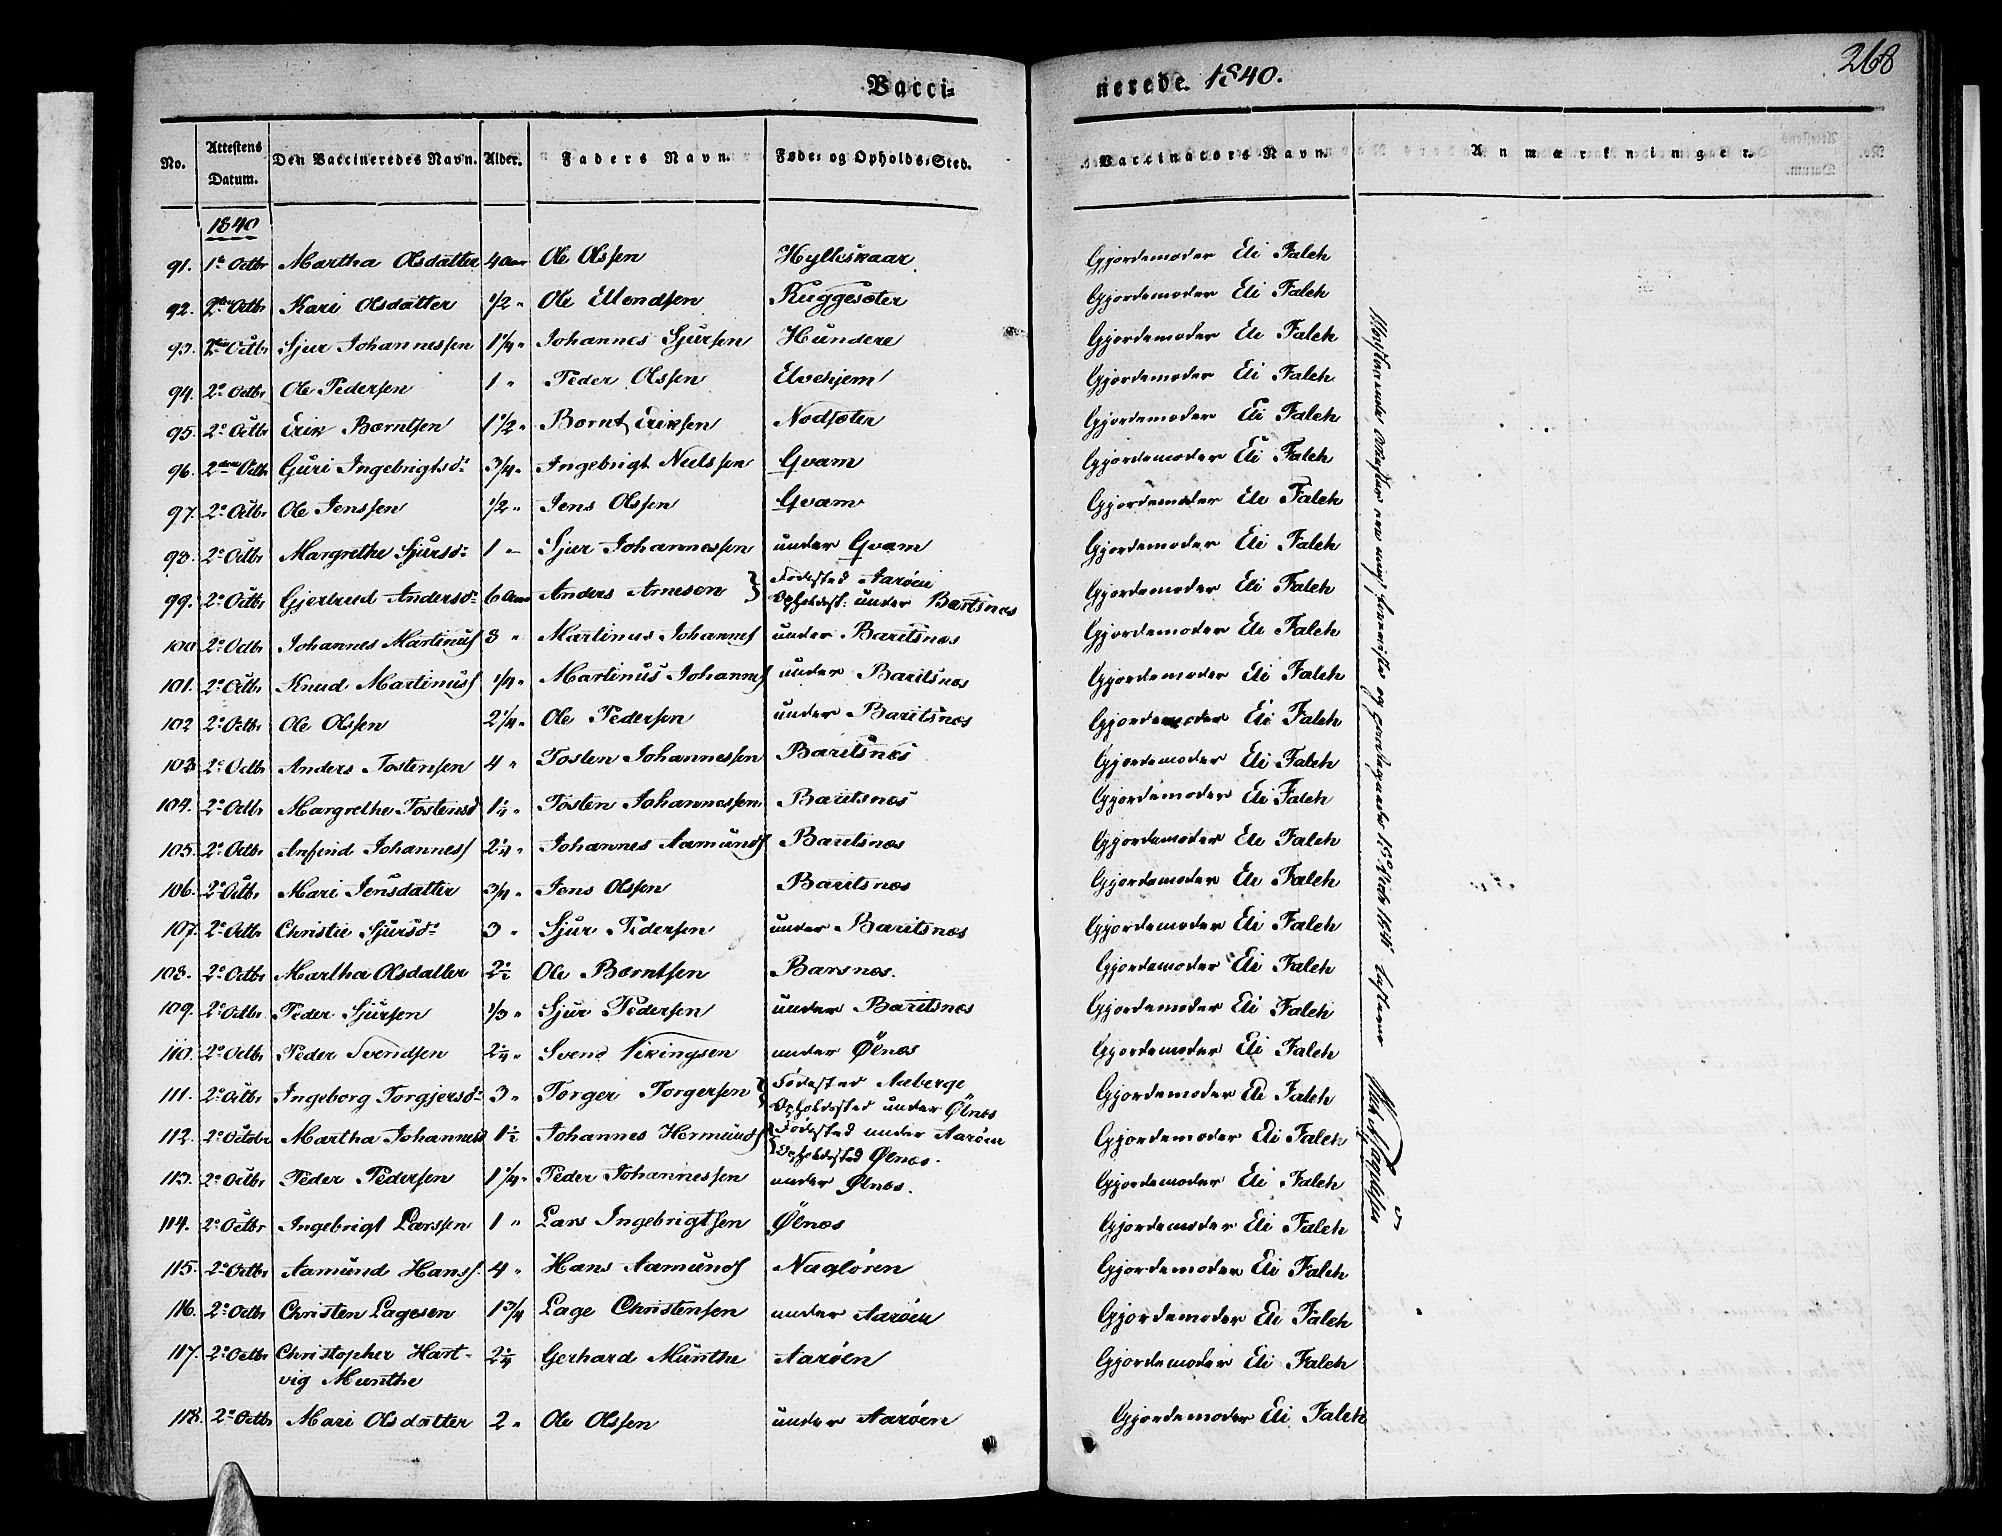 268
Vacci-
nerede. 1840.
No. Attestens Datum. Den Vaccineredes Navn. Alder. Faders Navn. Føde- og Opholds-Sted. Vaccinators Navn. Anmærkninger.
1840
91. 1ste Octbr Martha Olsdatter 4 Aar Ole Olssen Hylleskaar Gjordemoder Eli Faleh
92. 2den Octbr Kari Olsdatter 1/2 " Ole Ellendsen Kuggesæter Gjordemoder Eli Faleh
93. 2den Octbr Sjur Johannessen 1 1/4 " Johannes Sjursen Hundere Gjordemoder Eli Faleh
94. 2° Octbr Ole Pedersen 1 " Peder Olssen Elvehjem Gjordemoder Eli Faleh
95. 2° Octbr Erik Berntsen 1 1/2 " Bernt Eriksen Nodsæter Gjordemoder Eli Faleh
96. 2den Octb. Guri Ingebrigtsd: 3/4 " Ingebrigt Nielssen Qvam Gjordemoder Eli Faleh
97. 2° Octbr Ole Jenssen 1/2 " Jens Olssen Qvam Gjordemoder Eli Faleh
98. 2° Octbr Margrethe Sjursd: 1 " Sjur Johannessen under Qvam Gjordemoder Eli Faleh
99. 2° Octbr Gjertrud Andersd: 6 Aar Anders Arnesen } Fødested Aarøen
Opholdest: under Baritsnæs Gjordemoder Eli Faleh
100. 2° Octbr Johannes Martinus 3 " Martinus Johannes under Baritsnæs Gjordemoder Eli Faleh
101. 2° Octbr Knud Martinus 1/4 " Martinus Johannes under Baritsnæs Gjordemoder Eli Faleh
102 2° Octbr Ole Olssen 2 1/4 " Ole Pedersen under Baritsnæs Gjordemoder Eli Faleh
103. 2° Octbr Anders Tostensen 4 " Tosten Johannessen Baritsnæs Gjordemoder Eli Faleh
104. 2° Octbr Margrethe Tostensd 1 1/2 " Tosten Johannessen Baritsnæs Gjordemoder Eli Faleh
105. 2° Octbr Anfind Johannes 2 1/4 " Johannes Aamunds Baritsnæs Gjordemoder Eli Faleh
106. 2° Octbr Mari Jensdatter 3/4 " Jens Olssen Baritsnæs Gjordemoder Eli Faleh
107. 2° Octbr Christie Sjursd: 3 " Sjur Pedersen under Baritsnæs Gjordemoder Eli Faleh
108. 2° Octbr Martha Olsdatter 2 1/2 Ole Berntsen Barsnæs. Gjordemoder Eli Faleh
109. 2° Octbr Peder Sjursen 1/3 " Sjur Pedersen under Baritsnæs Gjordemoder Eli Faleh
110. 2° Octbr Peder Svendsen 2 1/4 " Svend Vikingsen under Ølnæs Gjordemoder Eli Faleh
111. 2° Octbr Ingeborg Torgjersd: 3 " Torger Torgersen } Fødested Aaberge
Opholdested under Ølnæs Gjordemoder Eli Faleh
112. 2° Octobr Martha Johannesd 1 1/2 " Johannes Hermunds } Fødested under Aarøen
Opholdested Ølnæs. Gjordemoder Eli Faleh
113. 2° Octbr Peder Pedersen 1 1/4 " Peder Johannessen under Ølnæs. Gjordemoder Eli Faleh
114. 2° Octbr Ingebrigt Larssen 1 " Lars Ingebrigtsen Ølnæs Gjordemoder Eli Faleh
115. 2° Octbr Aamund Hanss. 4 " Hans Aamunds Nagløren Gjordemoder Eli Faleh
116. 2° Octbr Christen Lagesen 1 3/4 Lage Christensen under Aarøen Gjordemoder Eli Faleh
117. 2° Octbr Christopher Hart-
vig Munthe 2 1/4 Gerhard Munthe Aarøen Gjordemoder Eli Faleh
118. 2° Octbr Mari Olsdatter 2 " Ole Olssen under Aarøen Gjordemoder Eli Faleh